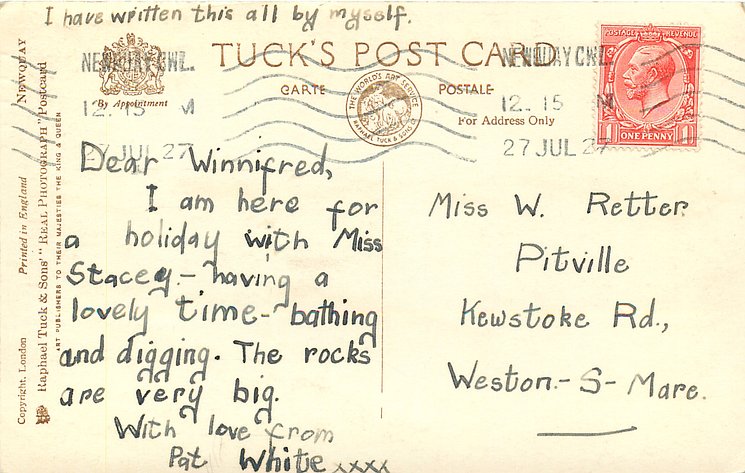 I have written this all by myself.
TUCK'S POST CARD
CARTE POSTALE
By Appointment
THE WORLD'S ART SERVICE
RAPHAEL TUCK & SONS LTD
For Address Only
NEWQUAY CWL.
12. 15 M
27 JUL 27
NEWQUAY CWL.
12. 15 M
27 JUL 27
POSTAGE REVENUE
1 ONE PENNY 1
Dear Winnifred,
I am here for
a holiday with Miss
Stacey - having a
lovely time - bathing
and digging. The rocks
are very big.
With love from
Pat White xxxx
Miss W. Retter
Pitville
Kewstoke Rd.,
Weston.-S-Mare.
Copyright, London Printed in England NEWQUAY
Raphael Tuck & Sons' "REAL PHOTOGRAPH" Postcard
ART PUBLISHERS TO THEIR MAJESTIES THE KING & QUEEN